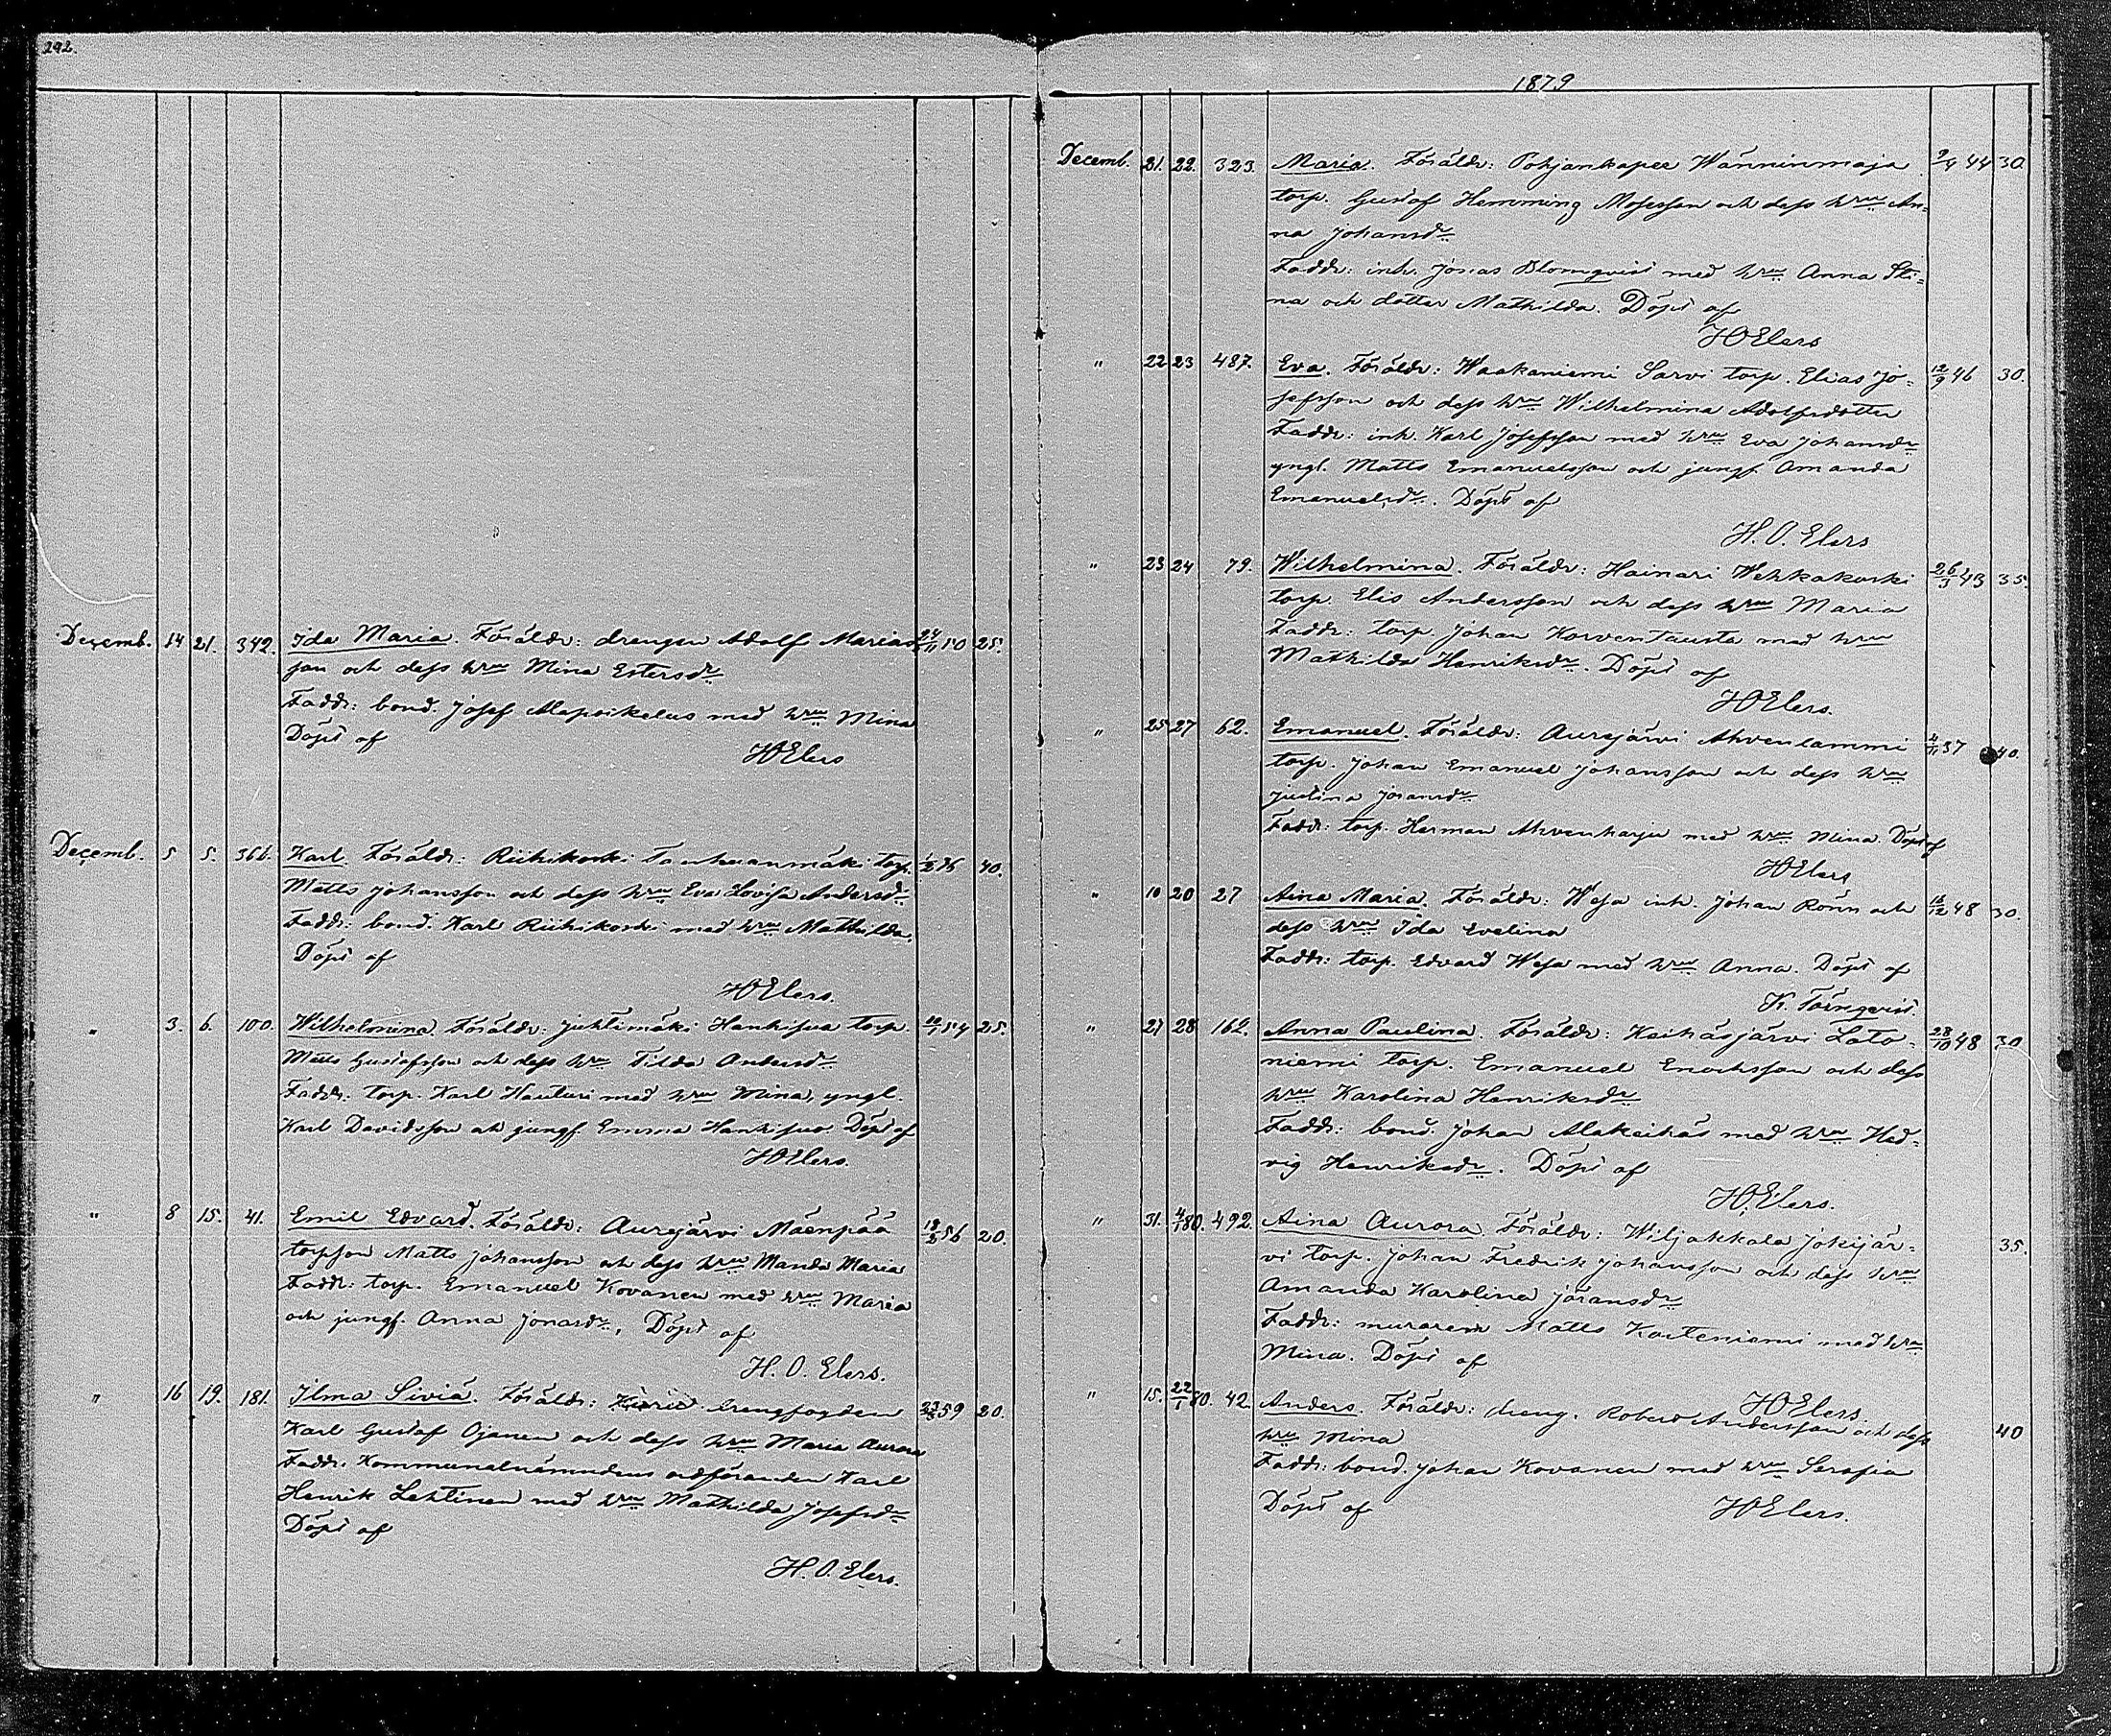 292.
Decemb. 14 21. 342. Ida Maria. Föräldr: drengen Adolf Marias 24/11 50 25.
son och dess hru Mina Estersdr
Faddr: bond. Josef Alapoikelus med hru Mina
Döpt af
HOElers
Decemb. 5 5. 366. Karl. Föräldr: Riihikoski Tanhuanmäki torp. 40.
Matts Johansson och dess hru Eva Lovisa Andersdr
Faddr: bond. Karl Riihikoski med hru Mathilda.
Döpt af
HOElers.
" 3. 6. 100. Wilhelmina. Föräldr: Juhtimäki Hankisua torp. 10/1 54 25.
Matts Gustafsson och dess hru Tilda Andersdr
Faddr. torp. Karl Hauturi med hru Mina, yngl.
Karl Davidsson och jungf. Emma Hankisuo Döpt af
HOElers.
" 8 15. 41. Emil Edvard. Föräldr: Aurejärvi Mäenpää 18/5 56 20.
torpson Matts Johansson och dess hru Manda Maria
Faddr: torp. Emanuel Kovanen med hru Maria
och jungf. Anna Jonasdr, Döpt af
H. O. Elers.
" 16 19. 181. Ilma Siviä. Föräldr: drengfogden 59 20.
Karl Gustaf Ojanen och dess hru Maria Aurora
Faddr. Kommunalnämndens ordföranden Karl
Henrik Lehtinen med hru Mathilda Josefsdr
Döpt af
H. O. Elers.
1879
Decemb. 21. 22. 323. Maria. Föräldr: Pohjankapee Wänninmaja 9/4 44 30.
torp. Gustaf Hemming Mosesson och dess hru An-
na Johansdr
Faddr: inh. Josias Blomqvist med hru Anna Sti-
na och dotter Mathilda. Döpt af
HOElers
" 22 23 487. Eva. Föräldr: Waakaniemi Sarvi torp. Elias Jo- 12/9 46 30.
sefsson och dess hru Wilhelmina Adolfsdotter
Faddr: inh. Karl Josefsson med hru Eva Johansdr
yngl. Matts Emanuelsson och jungf. Amanda
Emanuelsdr. Döpt af
H. O. Elers
" 23 24 79. Wilhelmina. Föräldr: Hainari Wehkakoski 26/3 43 35
torp. Elis Andersson och dess hru Maria
Faddr: torp. Johan Korventausta med hru
Mathilda Henriksdr. Döpt af
HOElers.
" 25 27 62. Emanuel. Föräldr: Aurejärvi Ahvenlammi 4/11 37 40.
torp. Johan Emanuel Johansson och dess hru
Justina Joransdr
Faddr: torp. Herman Ahvenharju med hru Mina. Döpt af
HOElers
" 10 20 27 Aina Maria. Föräldr: Wesa inh. Johan Rönn och 15/12 48 30.
dess hru Ida Evelina
Faddr: torp. Edvard Wesa med hru Anna. Döpt af
K. Törnqvist.
" 27 28 162. Anna Paulina. Föräldr: Keihäsjärvi Lato- 28/10 48 30
niemi torp. Emanuel Enocksson och dess
hru Karolina Henriksdr
Faddr: bond. Johan Alakeihäs med hru Hed-
vig Henriksdr. Döpt af
HOElers.
" 31. 4/1 80. 492. Aina Aurora. Föräldr: Wiljakkala Jokijär- 35.
vi torp. Johan Fredrik Johansson och dess hru
Amanda Karolina Joransdr
Faddr: muraren Matts Karteniemi med hru
Mina. Döpt af
HOElers.
" 15. 22/1 80. 42. Anders. Föräldr: dreng. Robert Andersson och dess 40
hru Mina
Faddr: bond. Johan Kovanen med hru Serafia
Döpt af
HOElers.